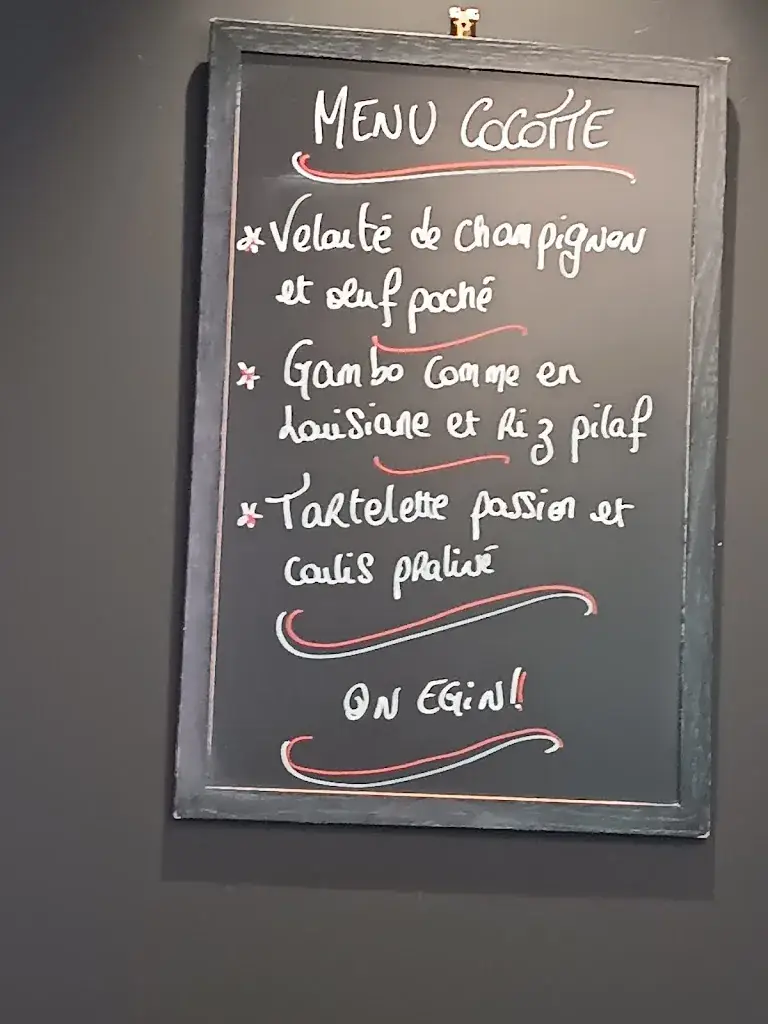 MENU COCOTTE
* Velouté de champignon
et œuf poché
* Gambo comme en
Louisiane et Riz pilaf
* Tartelette passion et
coulis praliné
ON EGIN!!